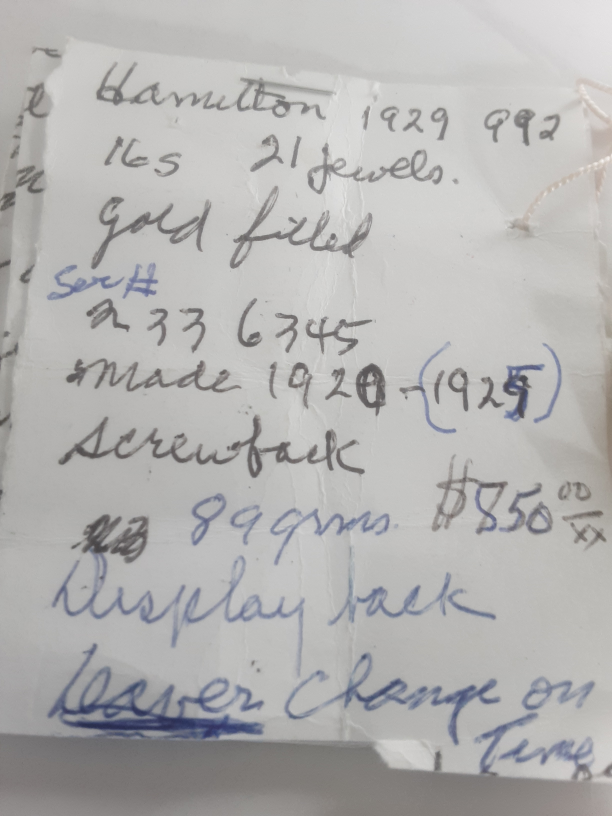 Hamilton 1929 992
16s 21 jewels.
gold filled
Ser #
2336345
Made 1920 - (1925)
Screwback
89 grms. $850 00/xx
Display back
Leaver Change on
Time